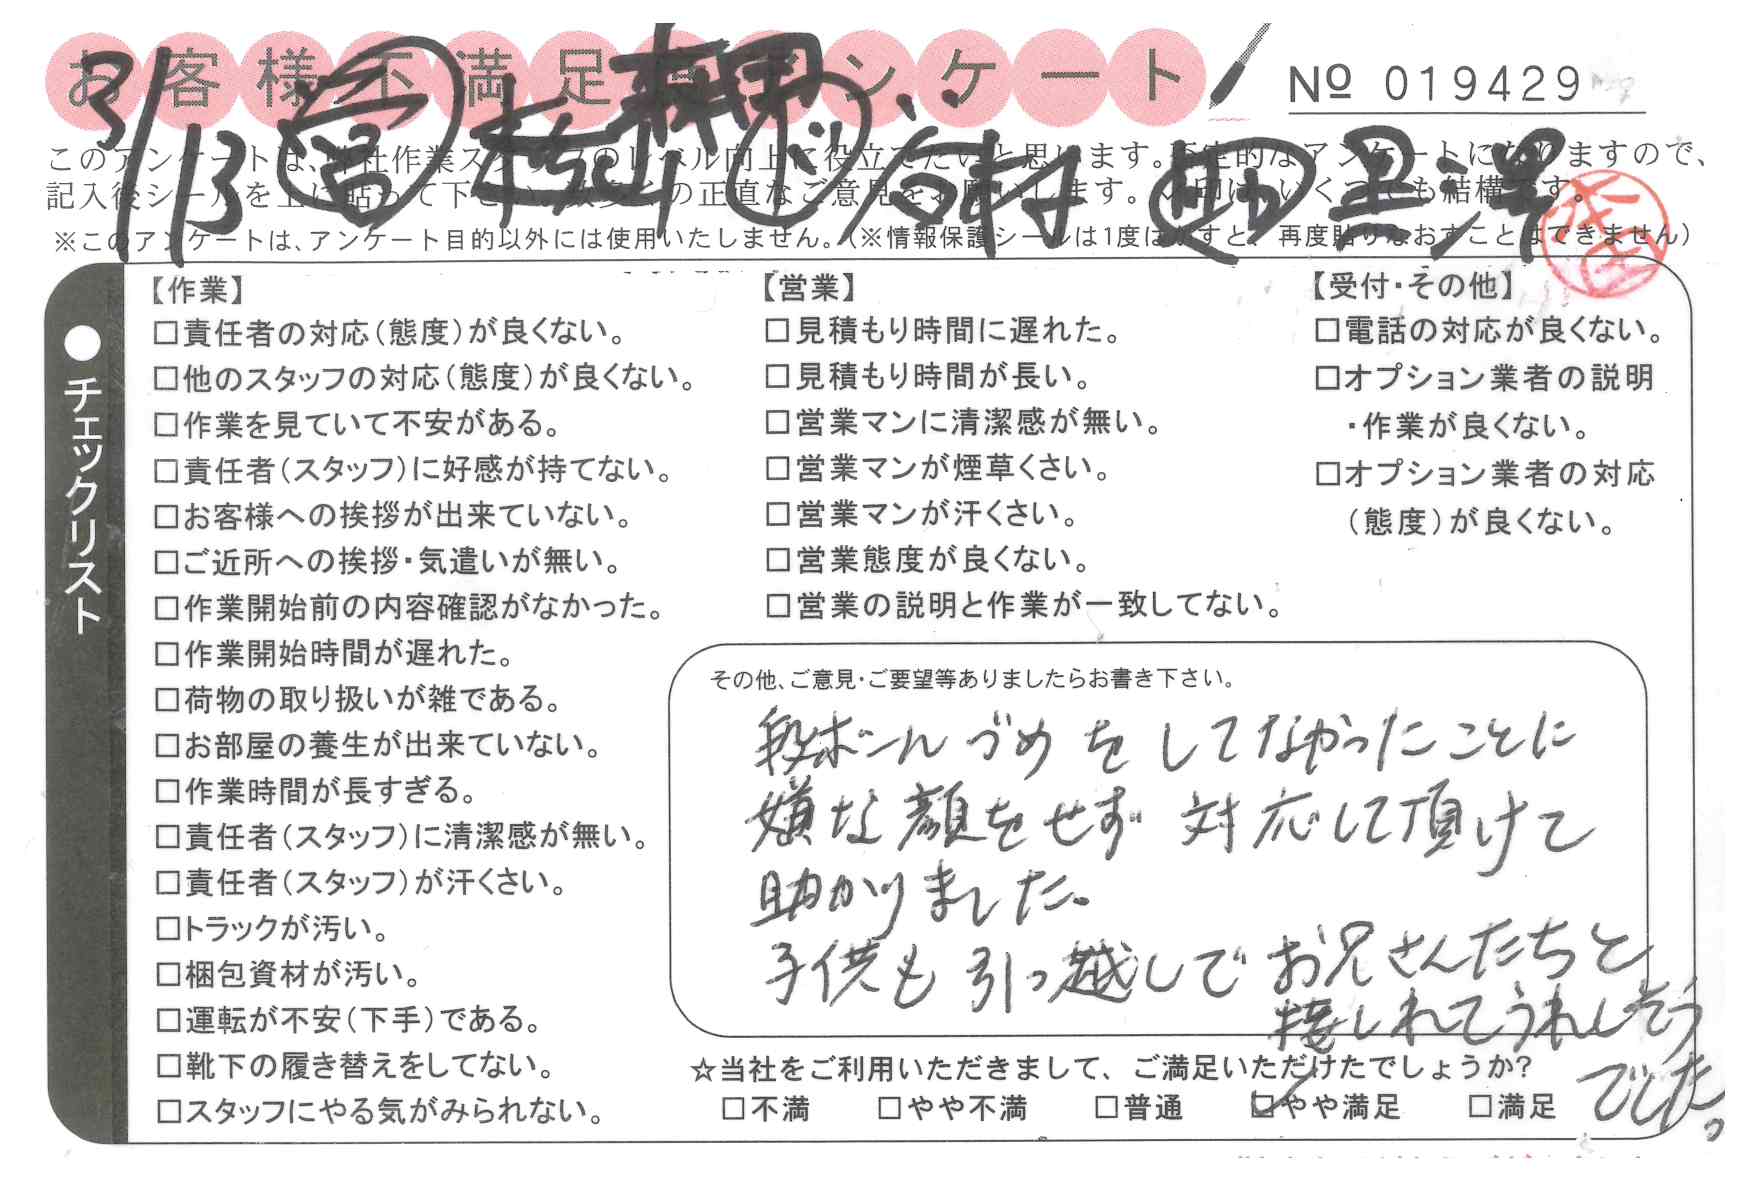 お客様不満足度アンケート
№ 019429
3/13 営 枝 森田 ど 向村 助 黒澤
このアンケートは、弊社作業スタッフのレベル向上に役立てたいと思います。否定的なアンケートになりますので、
記入後シールを上に貼って下さい。数多くの正直なご意見をお願いします。レ印は、いくつでも結構です。
※このアンケートは、アンケート目的以外には使用いたしません。(※情報保護シールは1度はがすと、再度貼りなおすことはできません)
●チェックリスト
【作業】
□責任者の対応(態度)が良くない。
□他のスタッフの対応(態度)が良くない。
□作業を見ていて不安がある。
□責任者(スタッフ)に好感が持てない。
□お客様への挨拶が出来ていない。
□ご近所への挨拶・気遣いが無い。
□作業開始前の内容確認がなかった。
□作業開始時間が遅れた。
□荷物の取り扱いが雑である。
□お部屋の養生が出来ていない。
□作業時間が長すぎる。
□責任者(スタッフ)に清潔感が無い。
□責任者(スタッフ)が汗くさい。
□トラックが汚い。
□梱包資材が汚い。
□運転が不安(下手)である。
□靴下の履き替えをしてない。
□スタッフにやる気がみられない。
【営業】
□見積もり時間に遅れた。
□見積もり時間が長い。
□営業マンに清潔感が無い。
□営業マンが煙草くさい。
□営業マンが汗くさい。
□営業態度が良くない。
□営業の説明と作業が一致してない。
【受付・その他】
□電話の対応が良くない。
□オプション業者の説明
・作業が良くない。
□オプション業者の対応
(態度)が良くない。
その他、ご意見・ご要望等ありましたらお書き下さい。
段ボールづめをしてなかったことに
嫌な顔をせず対応して頂けて
助かりました。
子供も引っ越しでお兄さんたちと
接しれてうれしそう
でした。
☆当社をご利用いただきまして、ご満足いただけたでしょうか?
□不満 □やや不満 □普通 ☑やや満足 □満足